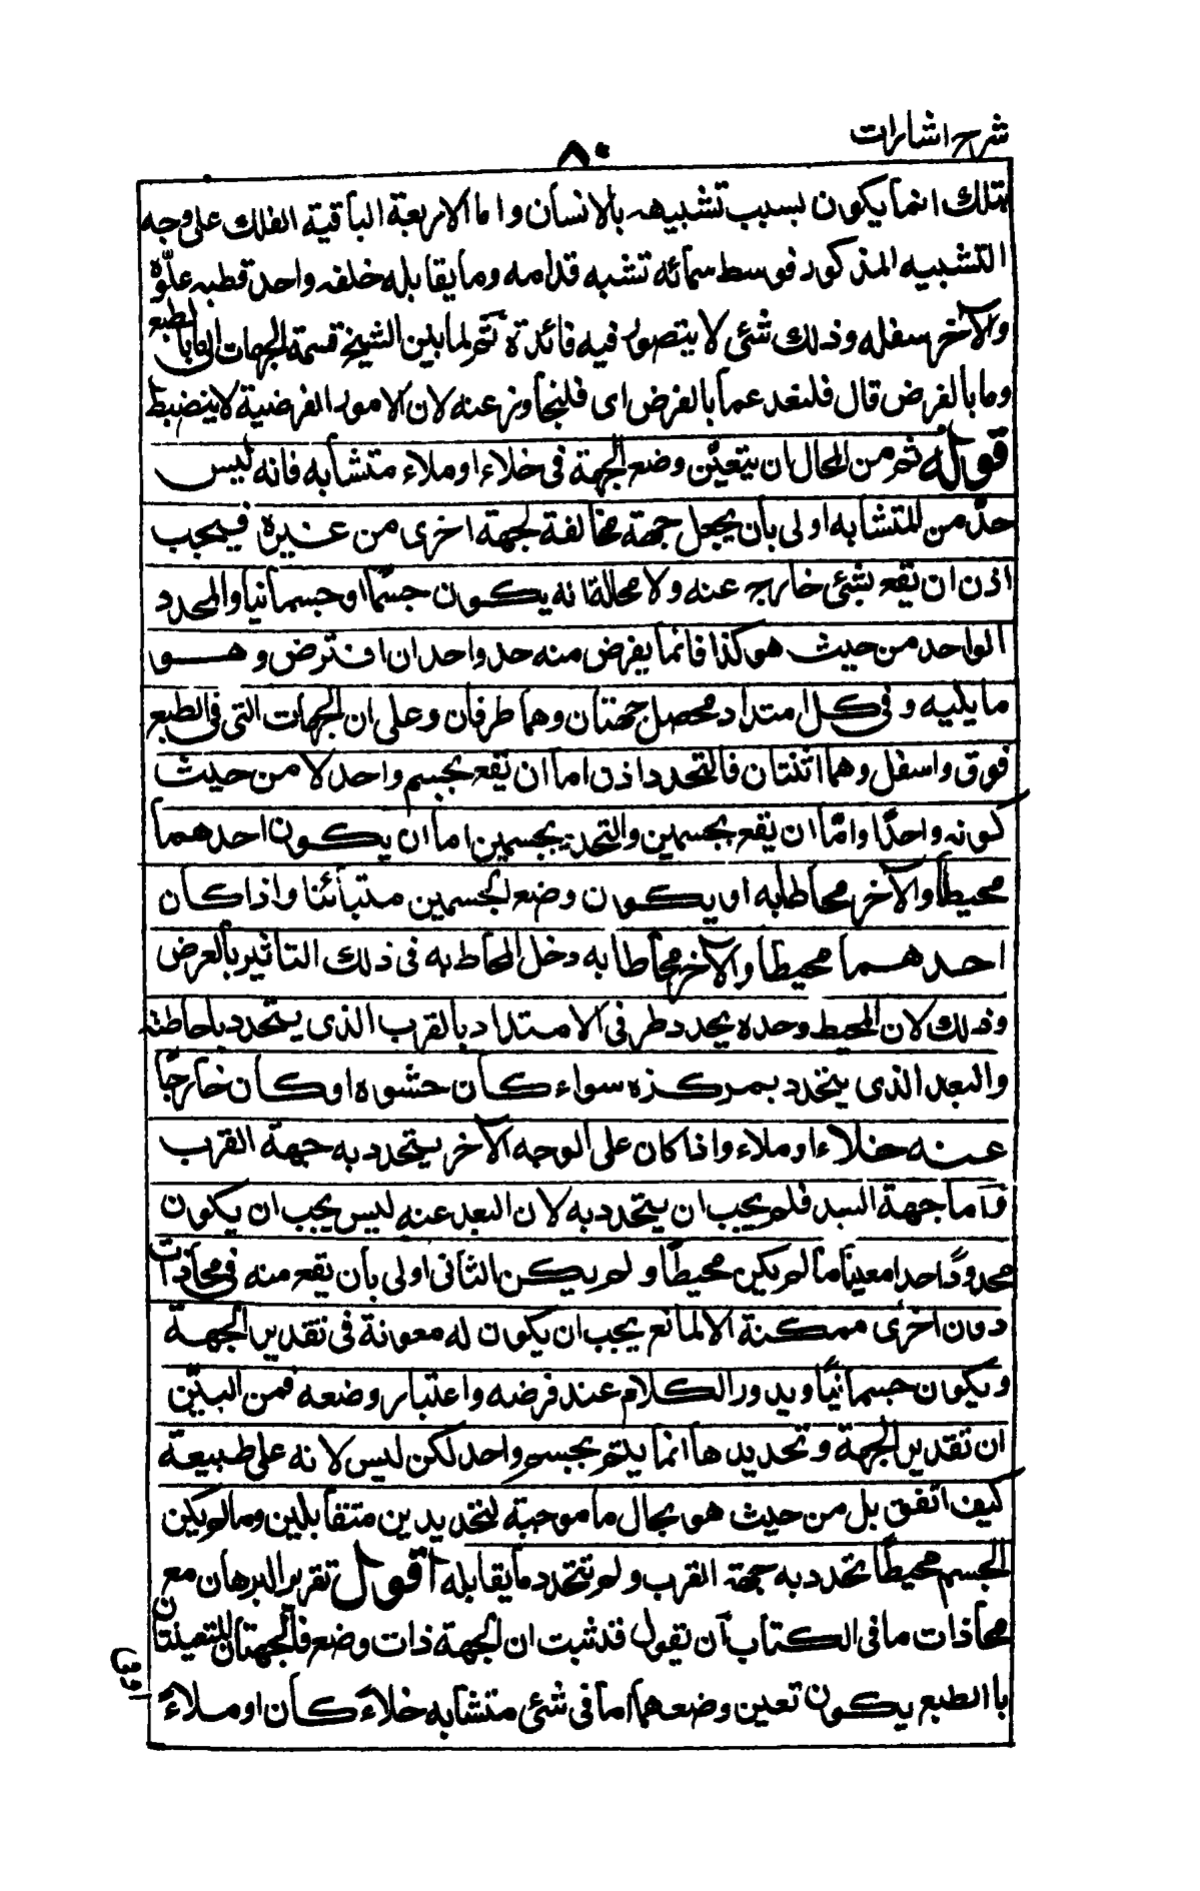 شرح اشارات
٨٠
بتلك انما يكون بسبب تشبيهه بالانسان واما الاربعة الباقية الفلك على وجه
التشبيه المذكور فوسط سمائه تشبه قدامه وما يقابله خلفه واحد قطبيه علوّه
والآخر سفله وذلك شئ لا يتصور فيه فائدة ثم لما بين الشيخ قسمة الجهات الى ما بالطبع
وما بالفرض قال فلنعد عما بالفرض اى فلنجاوز عنه لان الامور الفرضية لا ينضبط
قوله ثم من المحال ان يتعيّن وضع الجهة فى خلاء او ملاء متشابه فانه ليس
حدّ من المتشابه اولى بان يجعل جهة مخالفة لجهة اخرى من غيره فيجب
اذن ان يقع بشئ خارج عنه ولا محالة انه يكون جسمًا او جسمانيا والمحدد
الواحد من حيث هو كذا فانما يفرض منه حد واحد ان افترض وهو
ما يليه وفى كل امتداد محصل جهتان وهما طرفان وعلى ان الجهات التى فى الطبع
فوق واسفل وهما اثنتان فالتحدد اذن اما ان يقع بجسم واحد لا من حيث
كونه واحدًا وامّا ان يقع بجسمين والتحدد بجسمين اما ان يكون احدهما
محيطا والآخر محاطا به او يكون وضع الجسمين متبائنا واذا كان
احدهما محيطا والآخر محاطا به دخل المحاط به فى ذلك التاثير بالعرض
وذلك لان المحيط وحده يحدد طرفى الامتداد بالقرب الذى يتحدد باحاطته
والبعد الذى يتحدد بمركزه سواء كان حشوه او كان خارجًا
عنه خلاء او ملاء واذا كان على الوجه الآخر يتحدد به جهة القرب
فاما جهة البعد فلم يجب ان يتحدد به لان البعد عنه ليس يجب ان يكون
محدودًا احدا معينا ما لم يكن محيطًا ولم يكن الثانى اولى بان يقع منه فى محاذات
دون اخرى ممكنة الا لمانع يجب ان يكون له معونة فى تقدير الجهة
ويكون جسمانيًا ويدور الكلام عند فرضه واعتبار وضعه فمن البيّن
ان تقدير الجهة وتحديدها انما يتم بجسم واحد لكن ليس لانه على طبيعة
كيف اتفق بل من حيث هو بحال ما موجبة لتحديدين متقابلين وما لم يكن
الجسم محيطًا تحدد به جهة القرب ولم يتحدد ما يقابله اقول تقرير البرهان مع
محاذات ما فى الكتاب ان نقول قد ثبت ان الجهة ذات وضع فالجهتان المتعينتان
بالطبع يكون تعين وضعهما اما فى شئ متشابه خلاءً كان او ملاءً